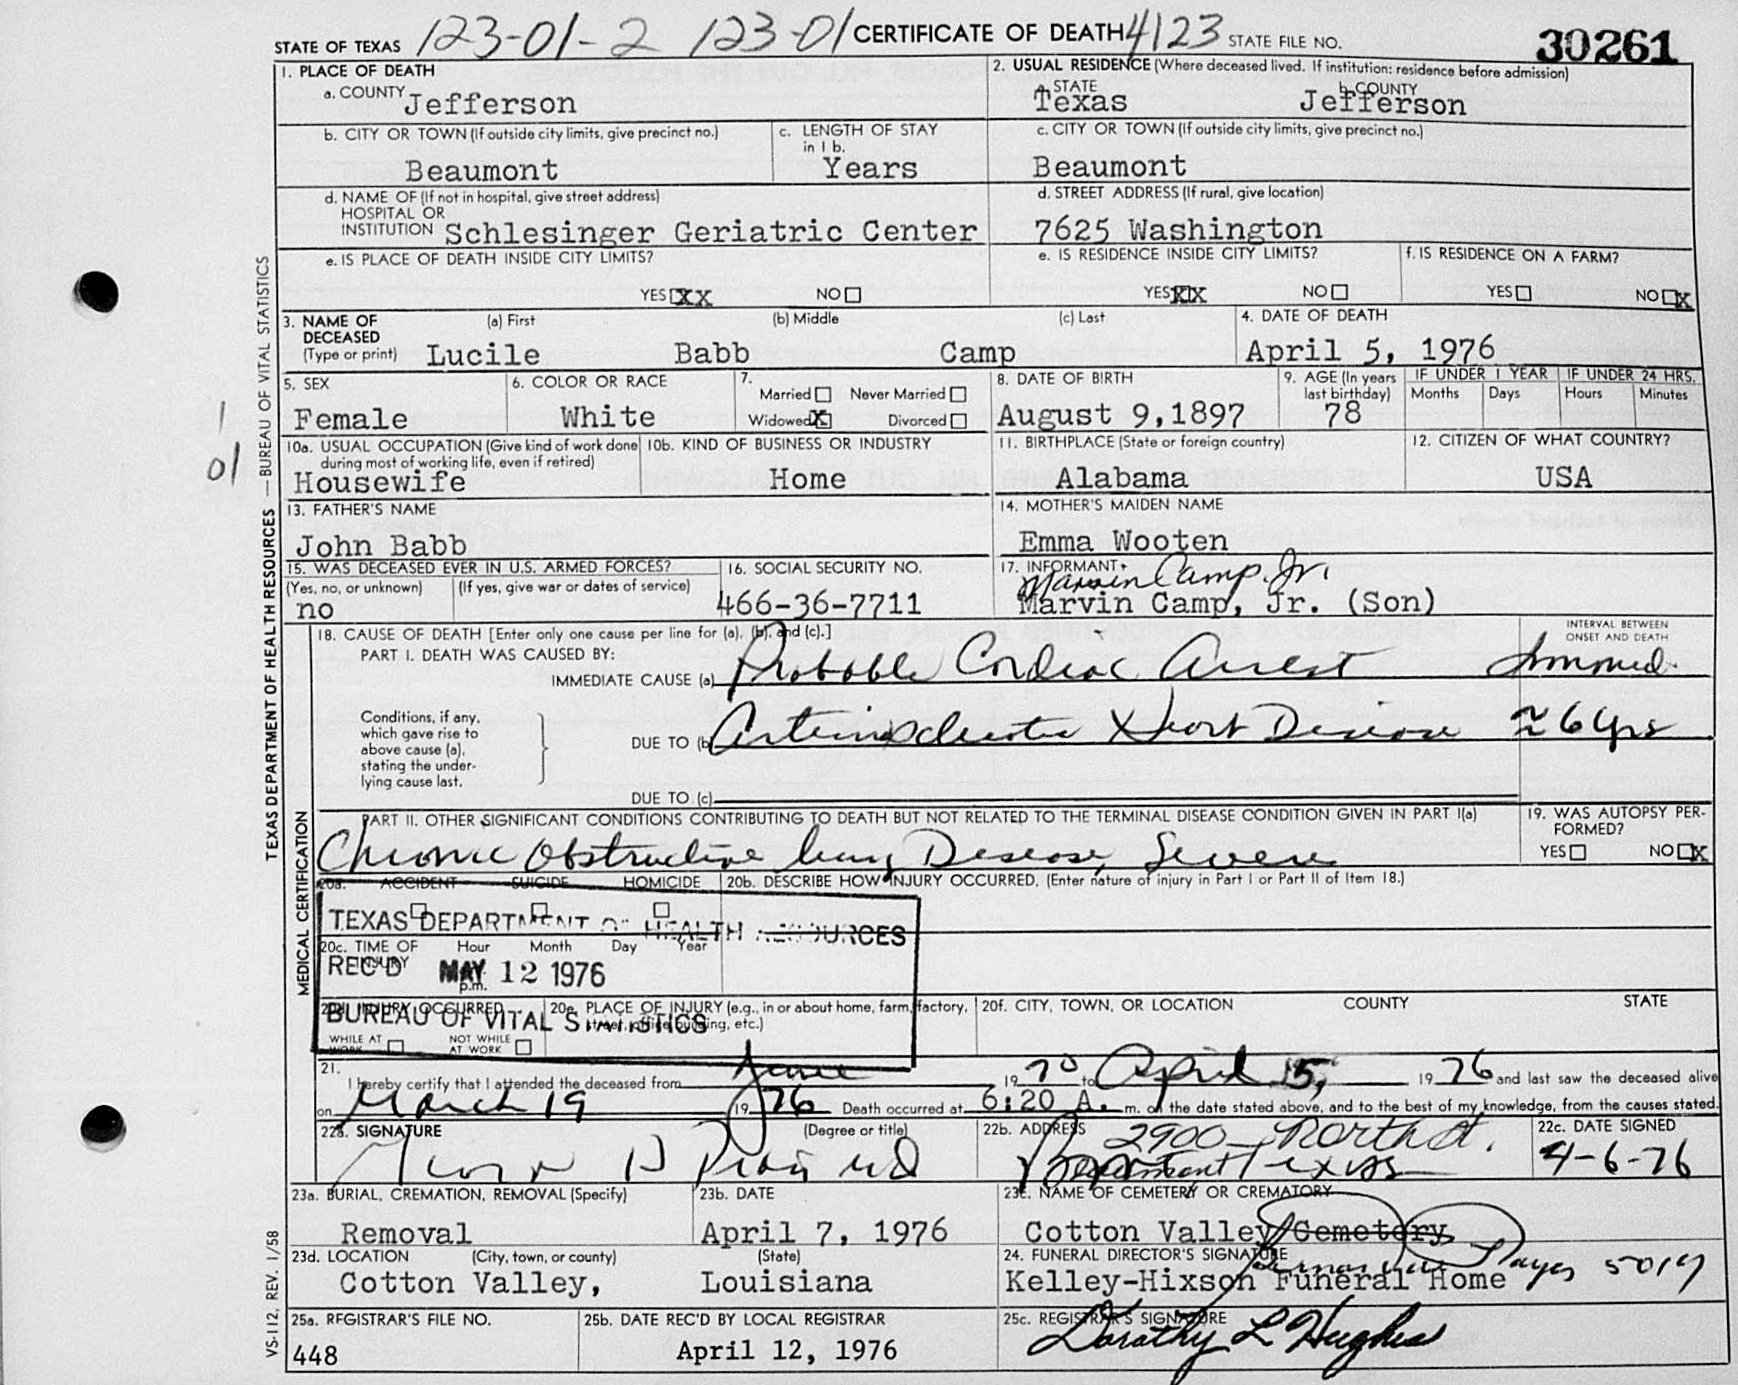 STATE OF TEXAS 123-01-2 123-01 CERTIFICATE OF DEATH 4123 STATE FILE NO. 30261
1. PLACE OF DEATH
a. COUNTY Jefferson
2. USUAL RESIDENCE (Where deceased lived. If institution: residence before admission)
a. STATE Texas b. COUNTY Jefferson
b. CITY OR TOWN (If outside city limits, give precinct no.)
Beaumont
c. LENGTH OF STAY in 1 b.
Years
c. CITY OR TOWN (If outside city limits, give precinct no.)
Beaumont
d. NAME OF (If not in hospital, give street address)
HOSPITAL OR
INSTITUTION Schlesinger Geriatric Center
d. STREET ADDRESS (If rural, give location)
7625 Washington
e. IS PLACE OF DEATH INSIDE CITY LIMITS?
YES XX NO
e. IS RESIDENCE INSIDE CITY LIMITS?
YES XX NO
f. IS RESIDENCE ON A FARM?
YES NO X
3. NAME OF DECEASED (Type or print)
(a) First (b) Middle (c) Last
Lucile Babb Camp
4. DATE OF DEATH
April 5, 1976
5. SEX
Female
6. COLOR OR RACE
White
7.
Married Never Married
Widowed X Divorced
8. DATE OF BIRTH
August 9,1897
9. AGE (In years last birthday)
78
IF UNDER 1 YEAR IF UNDER 24 HRS.
Months Days Hours Minutes
1
01
10a. USUAL OCCUPATION (Give kind of work done during most of working life, even if retired)
Housewife
10b. KIND OF BUSINESS OR INDUSTRY
Home
11. BIRTHPLACE (State or foreign country)
Alabama
12. CITIZEN OF WHAT COUNTRY?
USA
13. FATHER'S NAME
John Babb
14. MOTHER'S MAIDEN NAME
Emma Wooten
15. WAS DECEASED EVER IN U.S. ARMED FORCES?
(Yes, no, or unknown) (If yes, give war or dates of service)
no
16. SOCIAL SECURITY NO.
466-36-7711
17. INFORMANT
Marvin Camp, Jr.
Marvin Camp, Jr. (Son)
18. CAUSE OF DEATH [Enter only one cause per line for (a), (b), and (c).]
INTERVAL BETWEEN ONSET AND DEATH
PART I. DEATH WAS CAUSED BY:
IMMEDIATE CAUSE (a) Probable Cardiac Arrest Immed.
Conditions, if any, which gave rise to above cause (a), stating the underlying cause last.
DUE TO (b) Arteriosclerotic Heart Disease ≈ 6 yrs
DUE TO (c)
PART II. OTHER SIGNIFICANT CONDITIONS CONTRIBUTING TO DEATH BUT NOT RELATED TO THE TERMINAL DISEASE CONDITION GIVEN IN PART I(a)
Chronic Obstructive Lung Disease, Severe
19. WAS AUTOPSY PERFORMED?
YES NO X
20a. ACCIDENT SUICIDE HOMICIDE
20b. DESCRIBE HOW INJURY OCCURRED. (Enter nature of injury in Part I or Part II of Item 18.)
TEXAS DEPARTMENT OF HEALTH RESOURCES
20c. TIME OF INJURY Hour Month Day Year
p.m.
REC'D MAY 12 1976
BUREAU OF VITAL STATISTICS
20d. INJURY OCCURRED
WHILE AT WORK NOT WHILE AT WORK
20e. PLACE OF INJURY (e.g., in or about home, farm, factory, street, office building, etc.)
20f. CITY, TOWN, OR LOCATION COUNTY STATE
21.
I hereby certify that I attended the deceased from June 1970 to April 5, 1976 and last saw the deceased alive
on March 19 1976 Death occurred at 6:20 A. m. on the date stated above, and to the best of my knowledge, from the causes stated.
22a. SIGNATURE (Degree or title)
MD
22b. ADDRESS 2900 North St.
Beaumont Texas
22c. DATE SIGNED
4-6-76
23a. BURIAL, CREMATION, REMOVAL (Specify)
Removal
23b. DATE
April 7, 1976
23c. NAME OF CEMETERY OR CREMATORY
Cotton Valley Cemetery
23d. LOCATION (City, town, or county) (State)
Cotton Valley, Louisiana
24. FUNERAL DIRECTOR'S SIGNATURE
5019
Kelley-Hixson Funeral Home
25a. REGISTRAR'S FILE NO.
448
25b. DATE REC'D BY LOCAL REGISTRAR
April 12, 1976
25c. REGISTRAR'S SIGNATURE
Dorothy L Hughes
TEXAS DEPARTMENT OF HEALTH RESOURCES — BUREAU OF VITAL STATISTICS
MEDICAL CERTIFICATION
VS-112, REV. 1/58